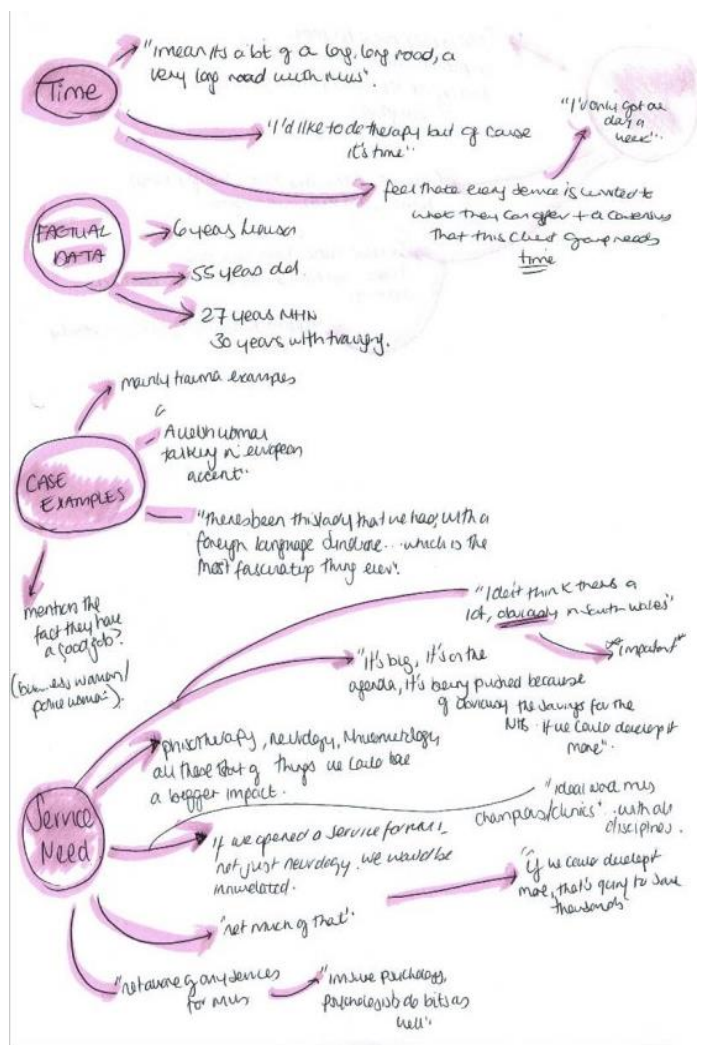 "I mean its a bit of a long, long road, a
very long road with MUS".
Time
"I'd like to do therapy but of cause
it's time"
"I've only got one
day a
week"
feel that every service is limited to
what they can offer + a consensus
that this client group needs
time
FACTUAL
DATA
6 years liaison
55 years old.
27 years MHN
30 years with training.
mainly trauma examples
A welsh woman
talking in european
accent".
CASE
EXAMPLES
"theres been this lady that we had, with a
foreign language syndrome... which is the
most fascinating thing ever".
mention the
fact they have
a good job?
(business woman/
police woman).
"I don't think there's a
lot, obviously in South Wales"
*important*
"It's big, it's on the
agenda, it's being pushed because
of obviously the savings for the
NHS. If we could develop it
more".
physiotherapy, neurology, rheumatology
all these sort of things we could have
a bigger impact.
Service
Need
"ideal world MUS
champions/clinics" ..with all
disciplines.
If we opened a service for MUS,
not just neurology, we would be
inundated.
"not much of that".
"if we could develop it
more, that's going to save
thousands"
"not aware of any services
for MUS
"I'm sure psychology,
psychologists do bits as
well".